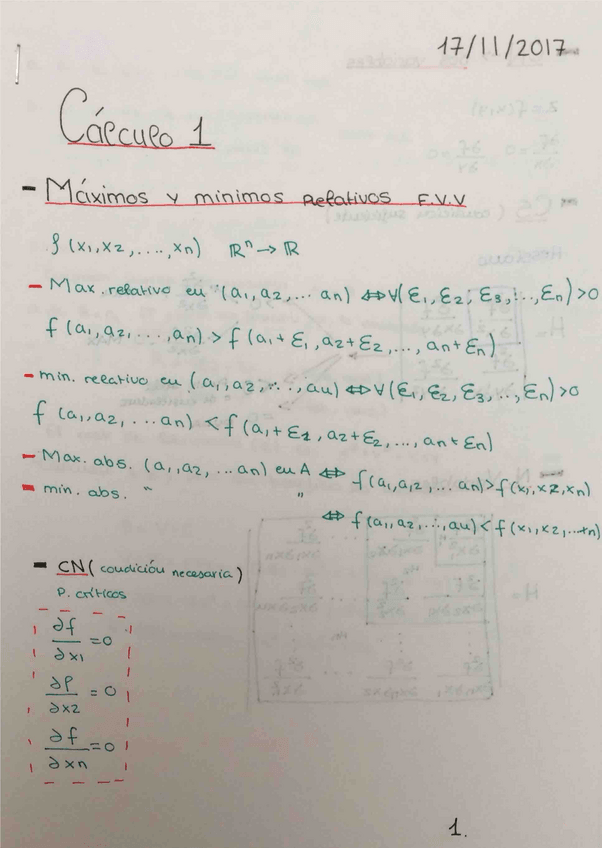 17/11/2017
Cálculo 1
- Máximos y minimos relativos F.V.V
f (x1, x2, ..., xn) ℝⁿ → ℝ
- Max. relativo en (a1, a2, ... an) ⇔ ∀(ε1, ε2, ε3, ..., εn) > 0
f (a1, a2, ..., an) > f (a1 + ε1, a2 + ε2, ..., an + εn)
- min. relativo en (a1, a2, ..., an) ⇔ ∀(ε1, ε2, ε3, ..., εn) > 0
f (a1, a2, ... an) < f (a1 + ε1, a2 + ε2, ..., an + εn)
- Max. abs. (a1, a2, ... an) en A ⇔ f(a1, a2, ... an) > f(x1, x2, xn)
- min. abs. " " ⇔ f(a1, a2, ..., an) < f(x1, x2, ... xn)
- CN (condición necesaria)
P. críticos
∂f/∂x1 = 0
∂f/∂x2 = 0
∂f/∂xn = 0
1.